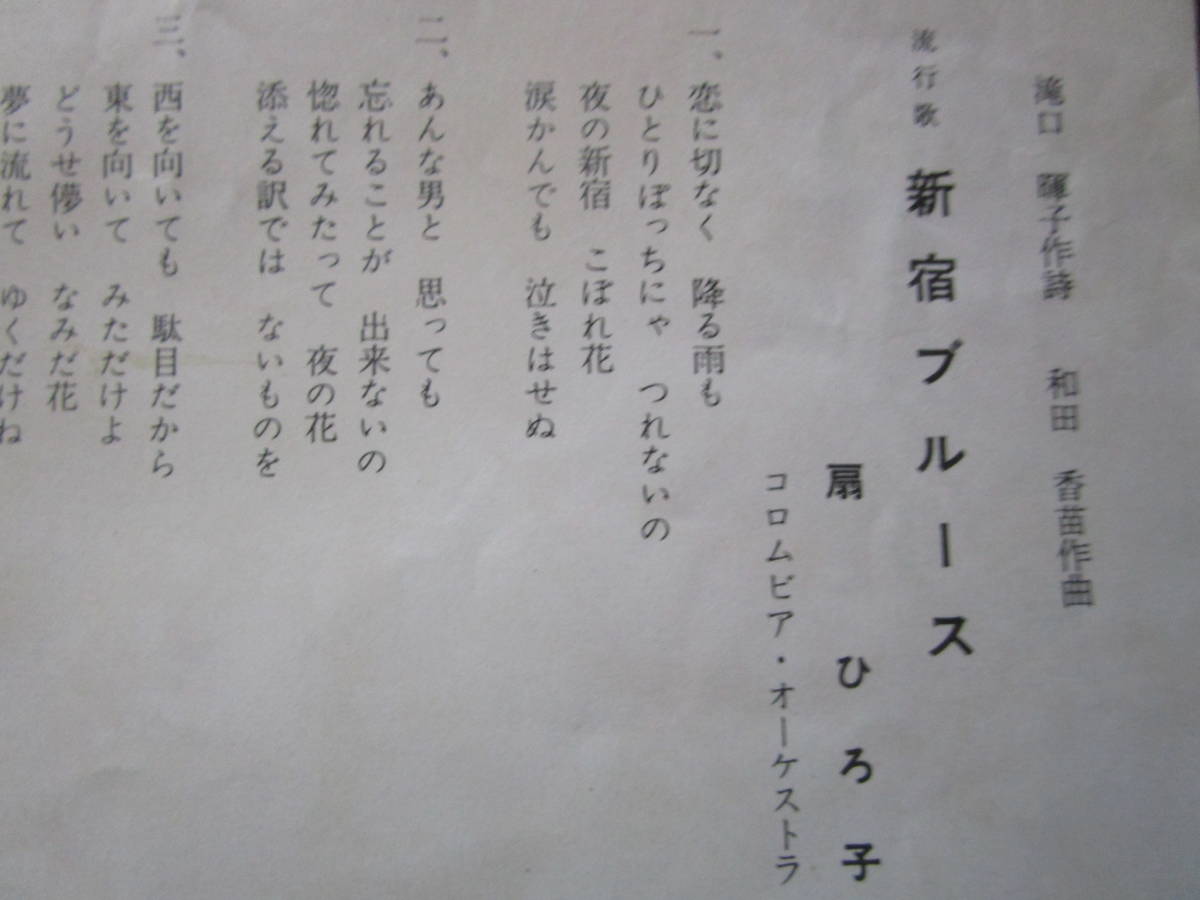 滝口 暉子作詩 和田 香苗作曲
流行歌 新宿ブルース
扇 ひろ子
コロムビア・オーケストラ
一、恋に切なく 降る雨も
ひとりぽっちにゃ つれないの
夜の新宿 こぼれ花
涙かんでも 泣きはせぬ
二、あんな男と 思っても
忘れることが 出来ないの
惚れてみたって 夜の花
添える訳では ないものを
三、西を向いても 駄目だから
東を向いて みただけよ
どうせ儚い なみだ花
夢に流れて ゆくだけね